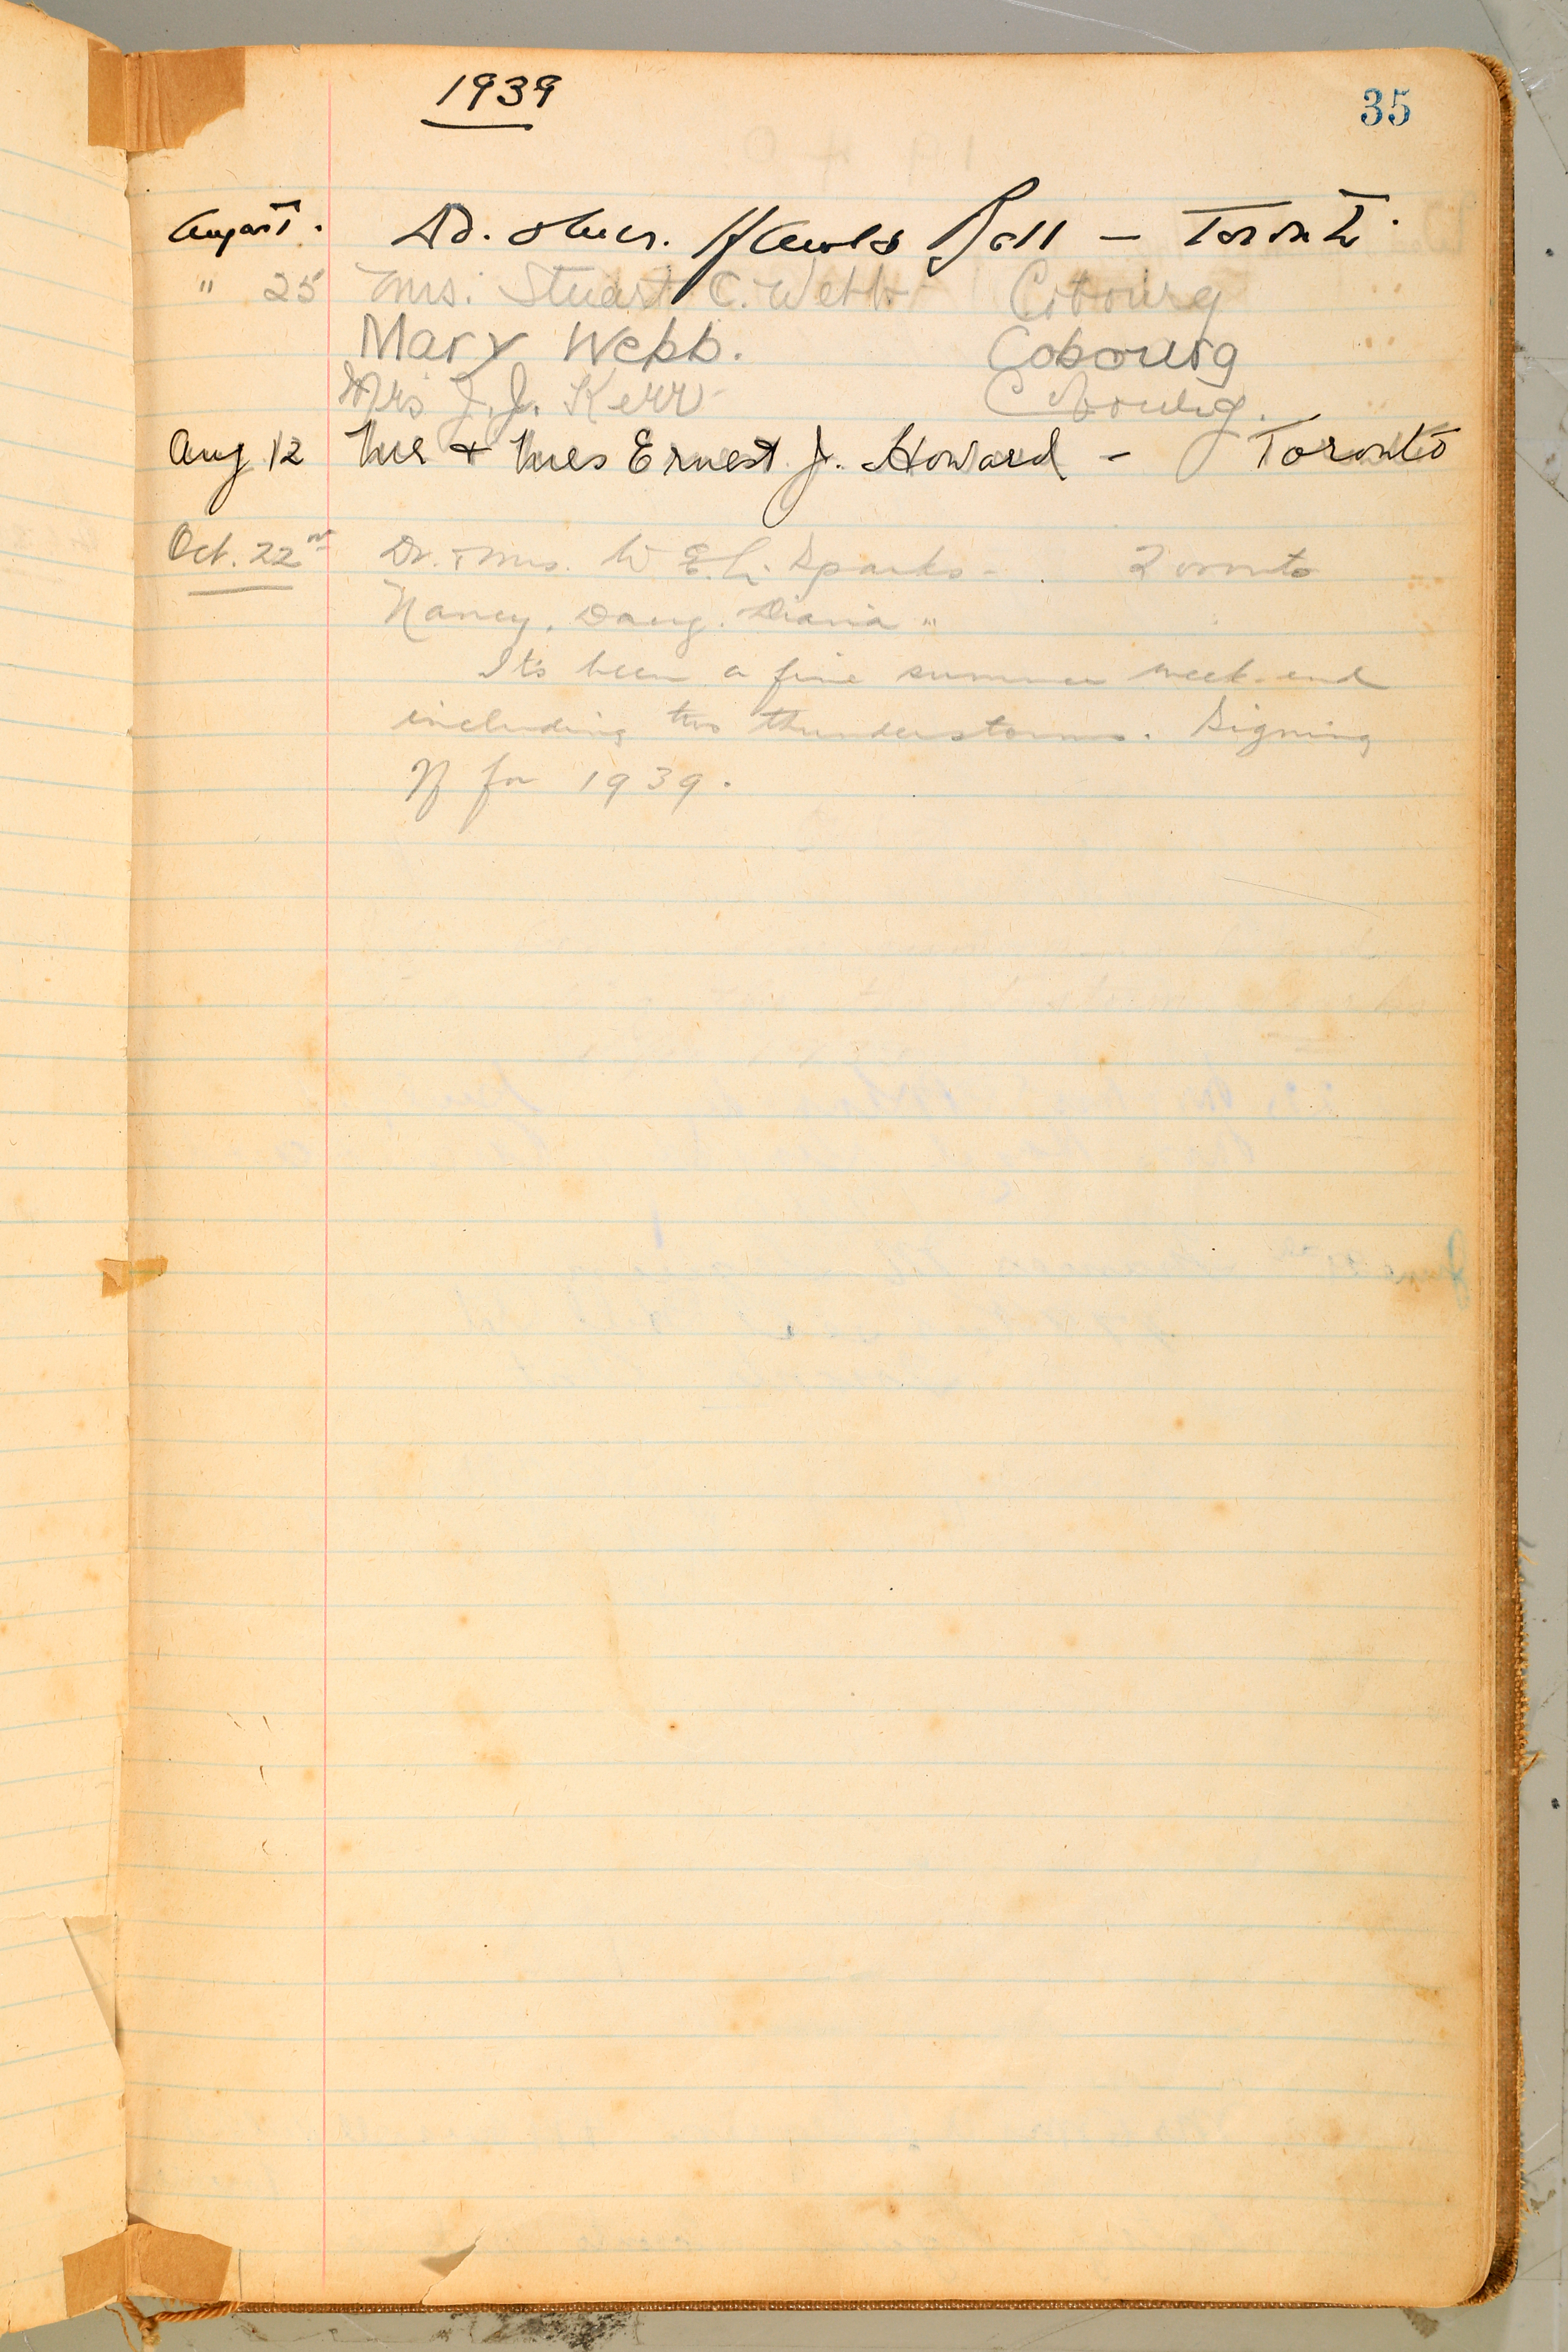 1939
35
August. Dr. & Mrs. Harold Ball — Toronto.
" 25 Mrs. Stuart C. Webb Cobourg
Mary Webb. Cobourg
Mrs J. J. Kerr Cobourg.
Aug 12 Mr & Mrs Ernest J. Howard - Toronto
Oct. 22nd Dr. & Mrs. W. E. L. Sparks - Toronto
Nancy, Doug. Diana "
It's been a fine summer week-end
including two thunderstorms. Signing
off for 1939.